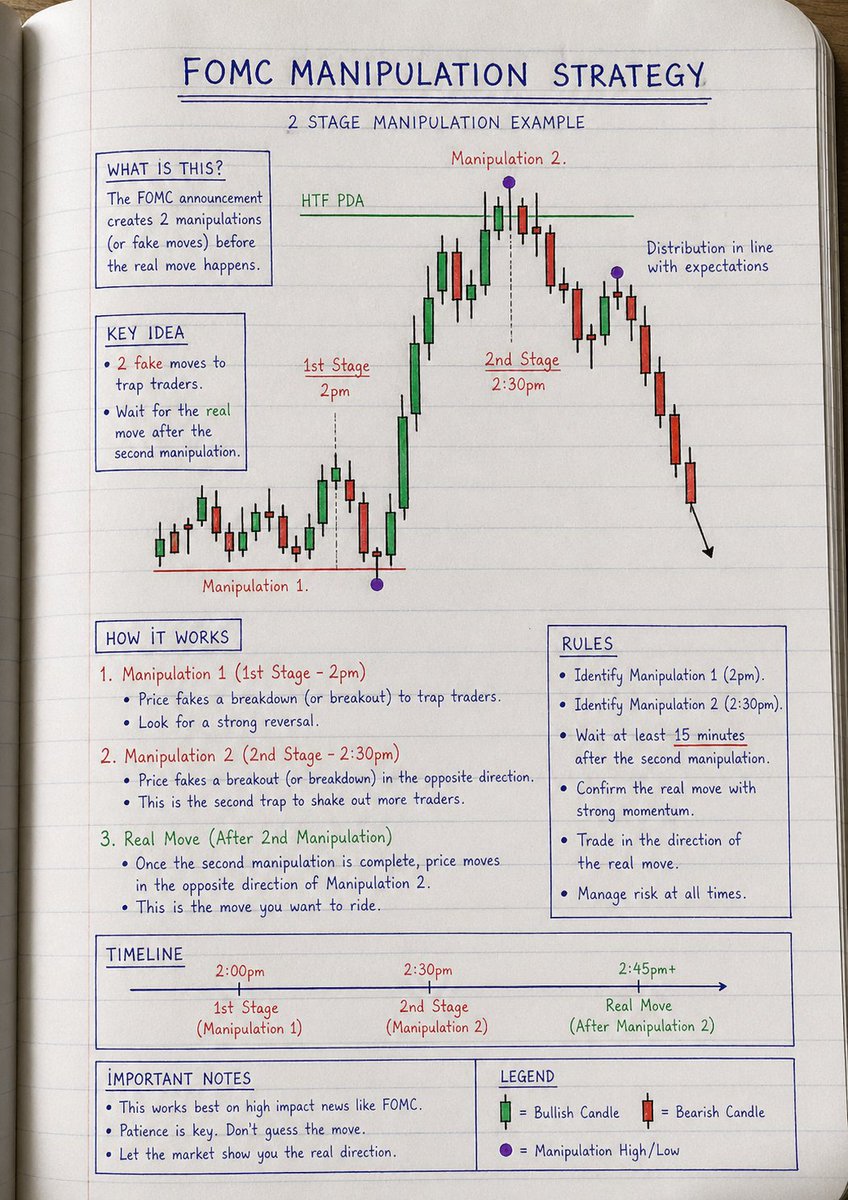 FOMC MANIPULATION STRATEGY
2 STAGE MANIPULATION EXAMPLE
WHAT IS THIS?
The FOMC announcement
creates 2 manipulations
(or fake moves) before
the real move happens.
KEY IDEA
• 2 fake moves to
trap traders.
• Wait for the real
move after the
second manipulation.
Manipulation 2.
HTF PDA
Distribution in line
with expectations
1st Stage
2pm
2nd Stage
2:30pm
Manipulation 1.
HOW IT WORKS
1. Manipulation 1 (1st Stage - 2pm)
• Price fakes a breakdown (or breakout) to trap traders.
• Look for a strong reversal.
2. Manipulation 2 (2nd Stage - 2:30pm)
• Price fakes a breakout (or breakdown) in the opposite direction.
• This is the second trap to shake out more traders.
3. Real Move (After 2nd Manipulation)
• Once the second manipulation is complete, price moves
in the opposite direction of Manipulation 2.
• This is the move you want to ride.
RULES
• Identify Manipulation 1 (2pm).
• Identify Manipulation 2 (2:30pm).
• Wait at least 15 minutes
after the second manipulation.
• Confirm the real move with
strong momentum.
• Trade in the direction of
the real move.
• Manage risk at all times.
TIMELINE
2:00pm
1st Stage
(Manipulation 1)
2:30pm
2nd Stage
(Manipulation 2)
2:45pm+
Real Move
(After Manipulation 2)
IMPORTANT NOTES
• This works best on high impact news like FOMC.
• Patience is key. Don't guess the move.
• Let the market show you the real direction.
LEGEND
= Bullish Candle
= Bearish Candle
= Manipulation High/Low